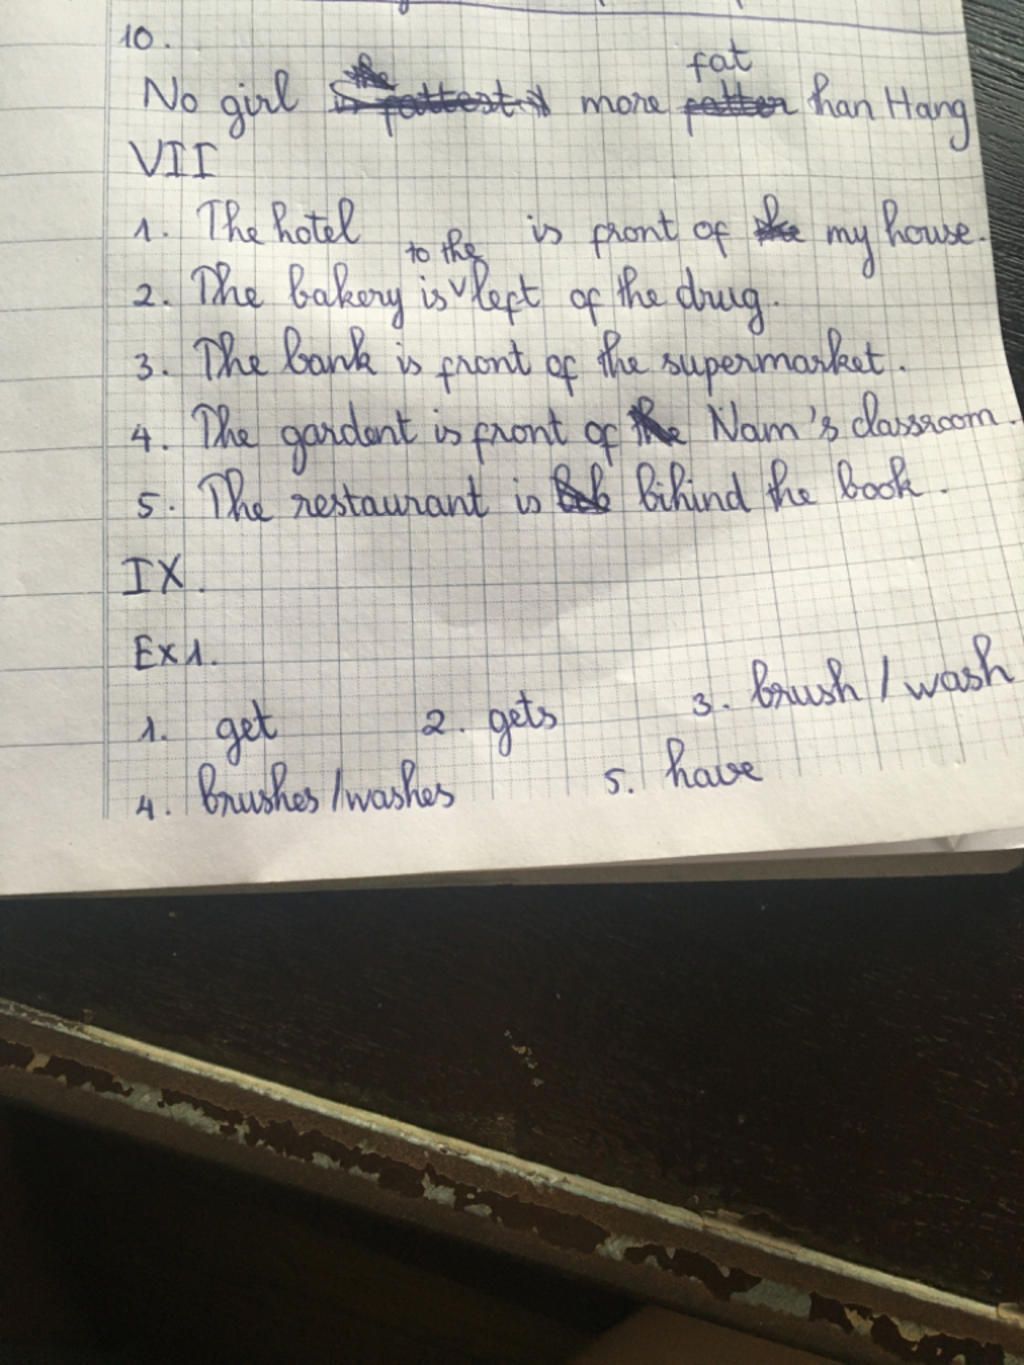 10.
fat
No girl more fatter than Hang
VII
1. The hotel is front of my house.
to the
2. The bakery is left of the drug.
3. The bank is front of the supermarket.
4. The gardent is front of Nam's classroom.
5. The restaurant is bihind the book.
IX.
Ex1.
1. get 2. gets 3. brush / wash
4. brushes / washes 5. have